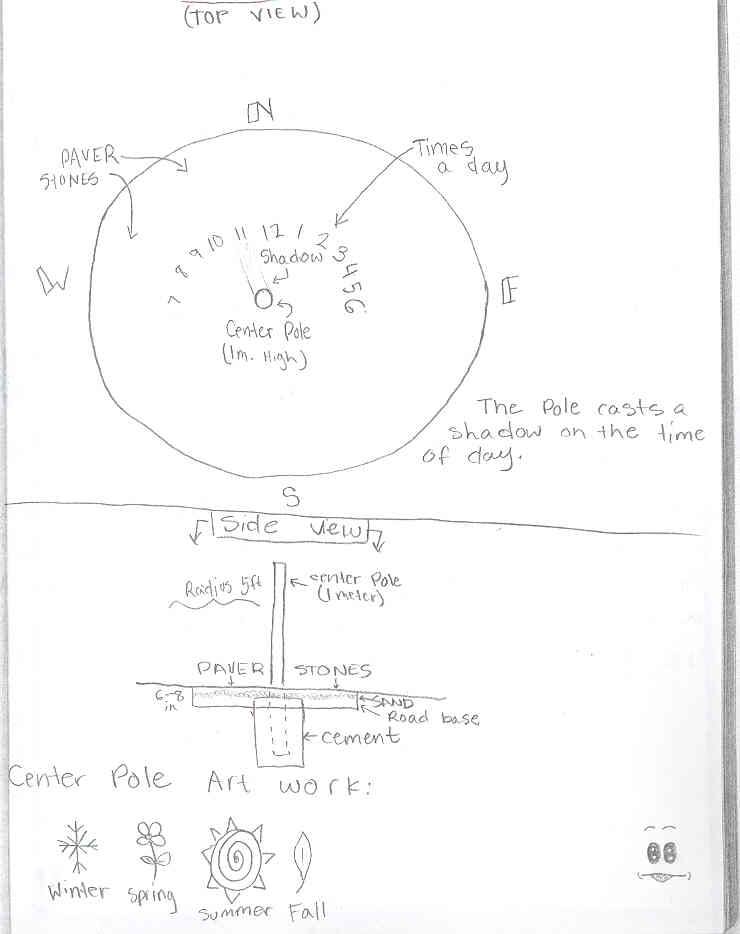 (TOP VIEW)
N
PAVER
STONES
Times
a day
7 8 9 10 11 12 1 2 3 4 5 6
Shadow
W
E
Center Pole
(1m. High)
The Pole casts a
shadow on the time
of day.
S
Side view
Radios 5ft
center Pole
(1 meter)
PAVER STONES
6-8
in
SAND
Road base
cement
Center Pole Art work:
Winter
Spring
Summer
Fall